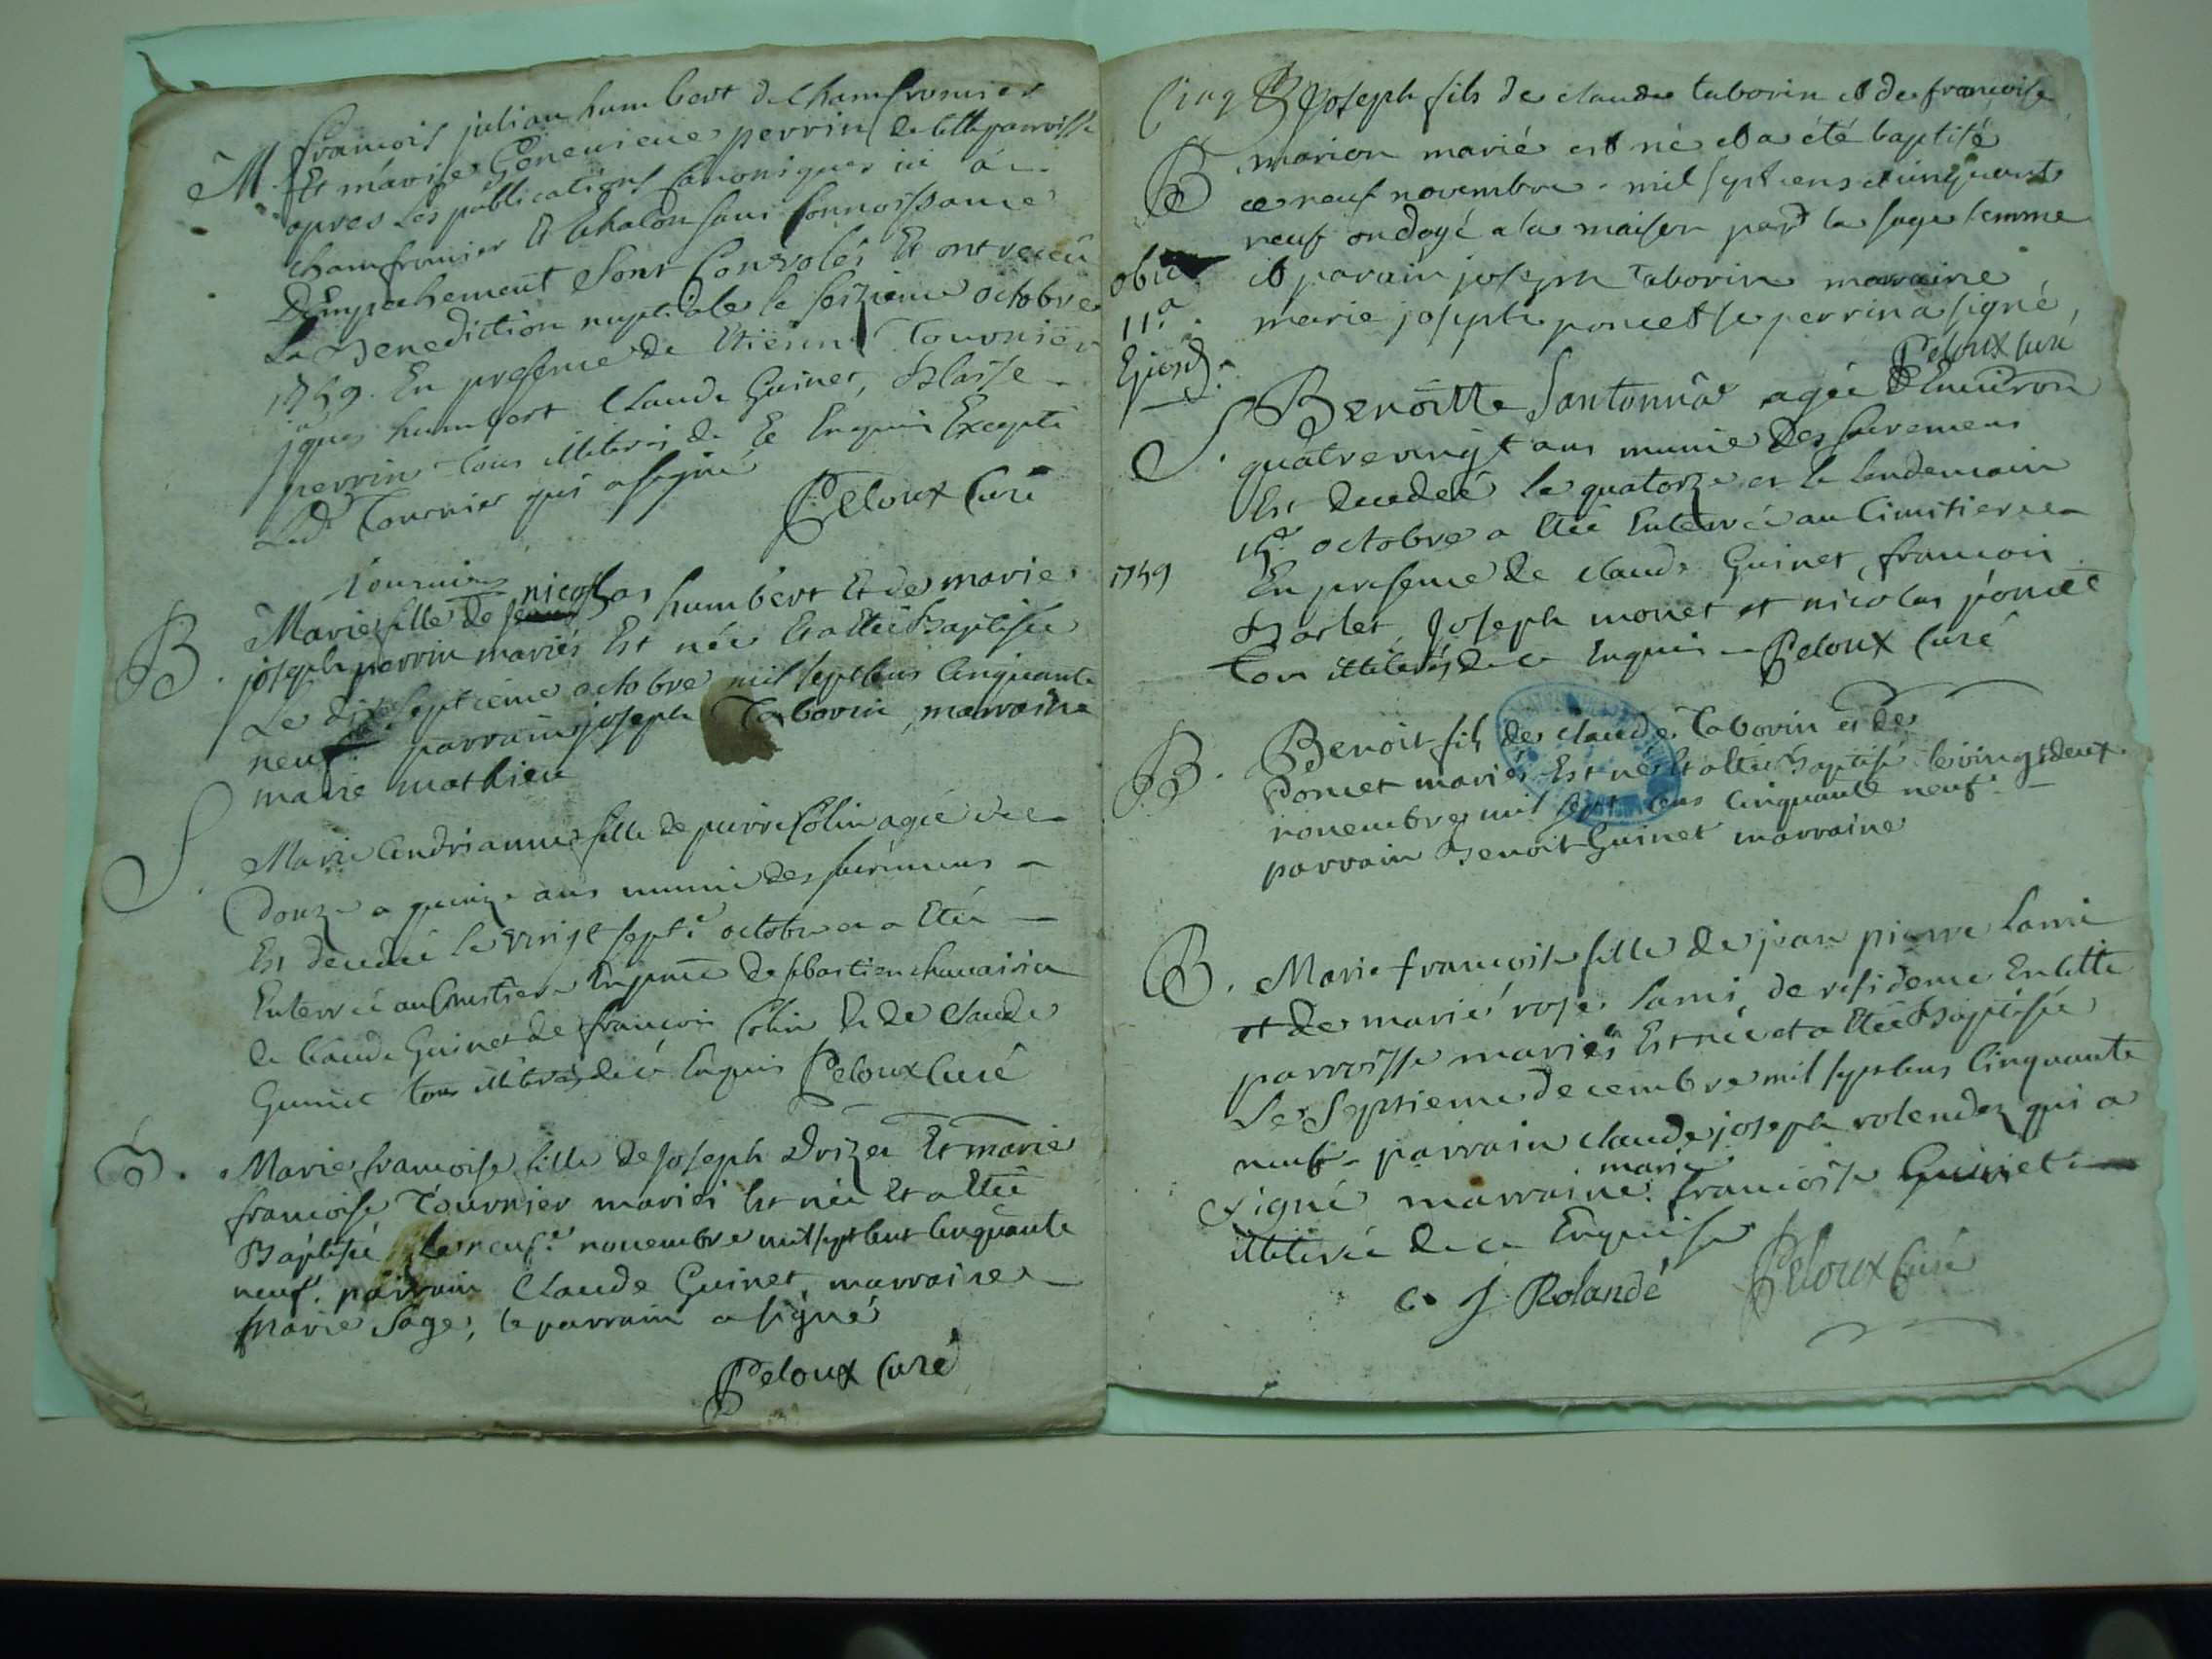 francois julian humbert de chamfromier
M. Et marie Genevieve perrin de cette parroisse
apres les publications canoniques ici à
chamfromier et chalon sans connoissance
D'Empechement sont convolés Et ont reçeu
La Benediction nuptiale le seizieme octobre
1759. En presence de Etienne Tournier
jques humbert Claude Guinet, Blaise
perrin tous illiterés de ce Enquis Excepté
Led Tournier qui a signé
Peloux Curé
tournier
B. Marie fille de nicolas humbert Et de marie
joseph perrin mariés Est née Et a etté Baptisée
Le dix septieme octobre mil sept cens cinquante
neuf parrain joseph Taborin, marraine
marie mathieu
S. Marie Andrianne fille de pierre Colin agée de
Douze a quinze ans munie des sacremens
Est decedée le vingt sept.e octobre et a Etté
Enterrée au Cimetiere En pnce de sbastien
de Claude Guinet de francois Colin Et de Claude
Guinet tous illiterés de ce Enquis Peloux Curé
B. Marie francoise fille de joseph Drizet Et marie
francoise Tournier mariés Est née Et a Etté
Baptisée le neuf.e novembre mil sept cent cinquante
neuf. parrain Claude Guinet, marraine
Marie Sage, le parrain a signé
Peloux Curé
Cinq
B Joseph fils de claude taborin et de francoise
marion marié est né et a été baptisé
ce neuf novembre mil sept cens cinquante
neuf ondoyé a la maison par la sage femme
obiit
et parain joseph taborin maraine
11.a
marie josephe poncet le perrin a signé,
Ejusd.
Peloux curé
S. Benoitte Santonna agée D'Environ
quatrevingt ans munie Des sacremens
Est decedée le quatorze et le lendemain
15.e octobre a Etée Enterrée au Cimitiere
1759
En presence de claude Guinet, francois
Barlet, Joseph monet et nicolas poncet
tous illiterés de ce Enquis Peloux Curé
B. Benoit fils de claude Taborin et de
Poncet mariés Est né Et a etté Baptisé le vingt deux
novembre mil sept cens cinquante neuf.
parrain Benoit Guinet marraine
B. Marie francoise fille de jean pierre Lami
et de marie rose Lami, de residence En cette
parroisse mariés Est née et a Etée Baptisée
Le Septieme decembre mil sept cens cinquante
neuf parrain claude joseph rolendez qui a
marie
signé marraine francoise Guinet
illiterée de ce Enquise
C. J. Rolandé Peloux Curé